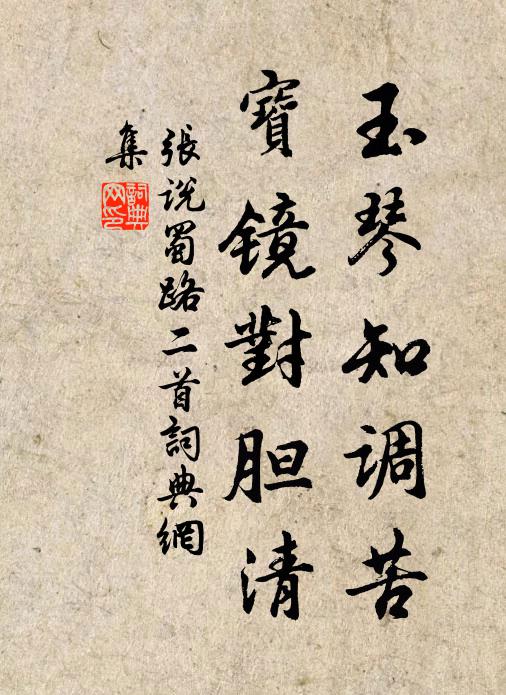 玉琴知调苦
寶镜對胆清
張说蜀路二首詞典網
集
詞典
网印